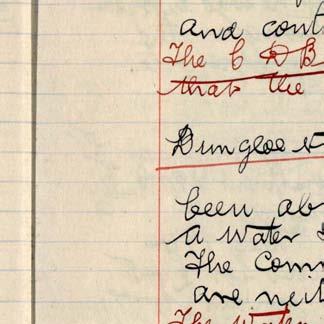 and cont
The C D B
that the
Dungloe
been ab
a water
The Com
are neit
The Water